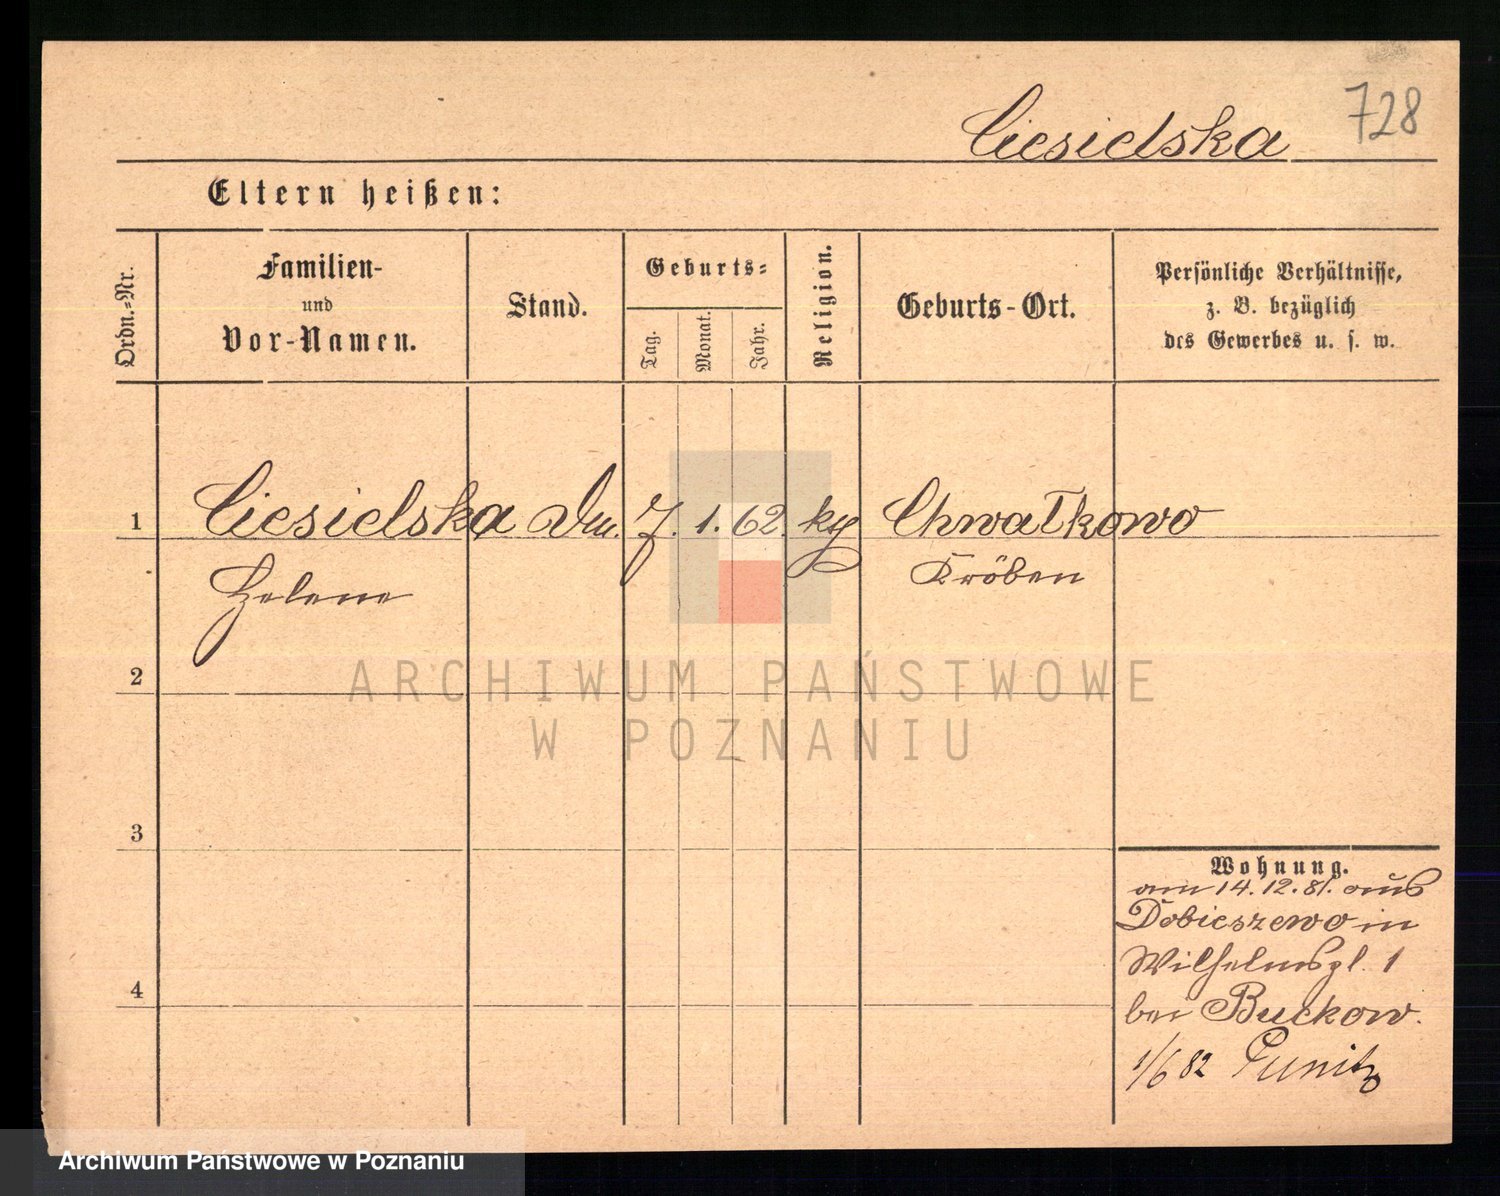 728
Ciesielska
Eltern heißen:
Ordn.-Nr.
Familien-
und
Vor-Namen.
Stand.
Geburts-
Tag.
Monat.
Jahr.
Religion.
Geburts-Ort.
Persönliche Verhältnisse,
z. B. bezüglich
des Gewerbes u. s. w.
1 Ciesielska 7. 1. 62. Chwałkowo
Helene Kröben
2
3
4
Wohnung.
am 14.12.81. aus
Dobieszewo in
Wilhelmspl. 1
bei Buckow.
1/6 82 Punitz
ARCHIWUM PAŃSTWOWE
W POZNANIU
Archiwum Państwowe w Poznaniu